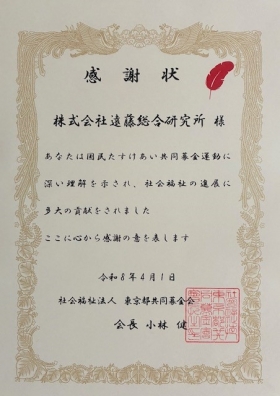 感謝状
株式会社遠藤総合研究所 様
あなたは国民たすけあい共同募金運動に
深い理解を示され、社会福祉の進展に
多大の貢献をされました
ここに心から感謝の意を表します
令和8年4月1日
社会福祉法人 東京都共同募金会
会長 小林 健